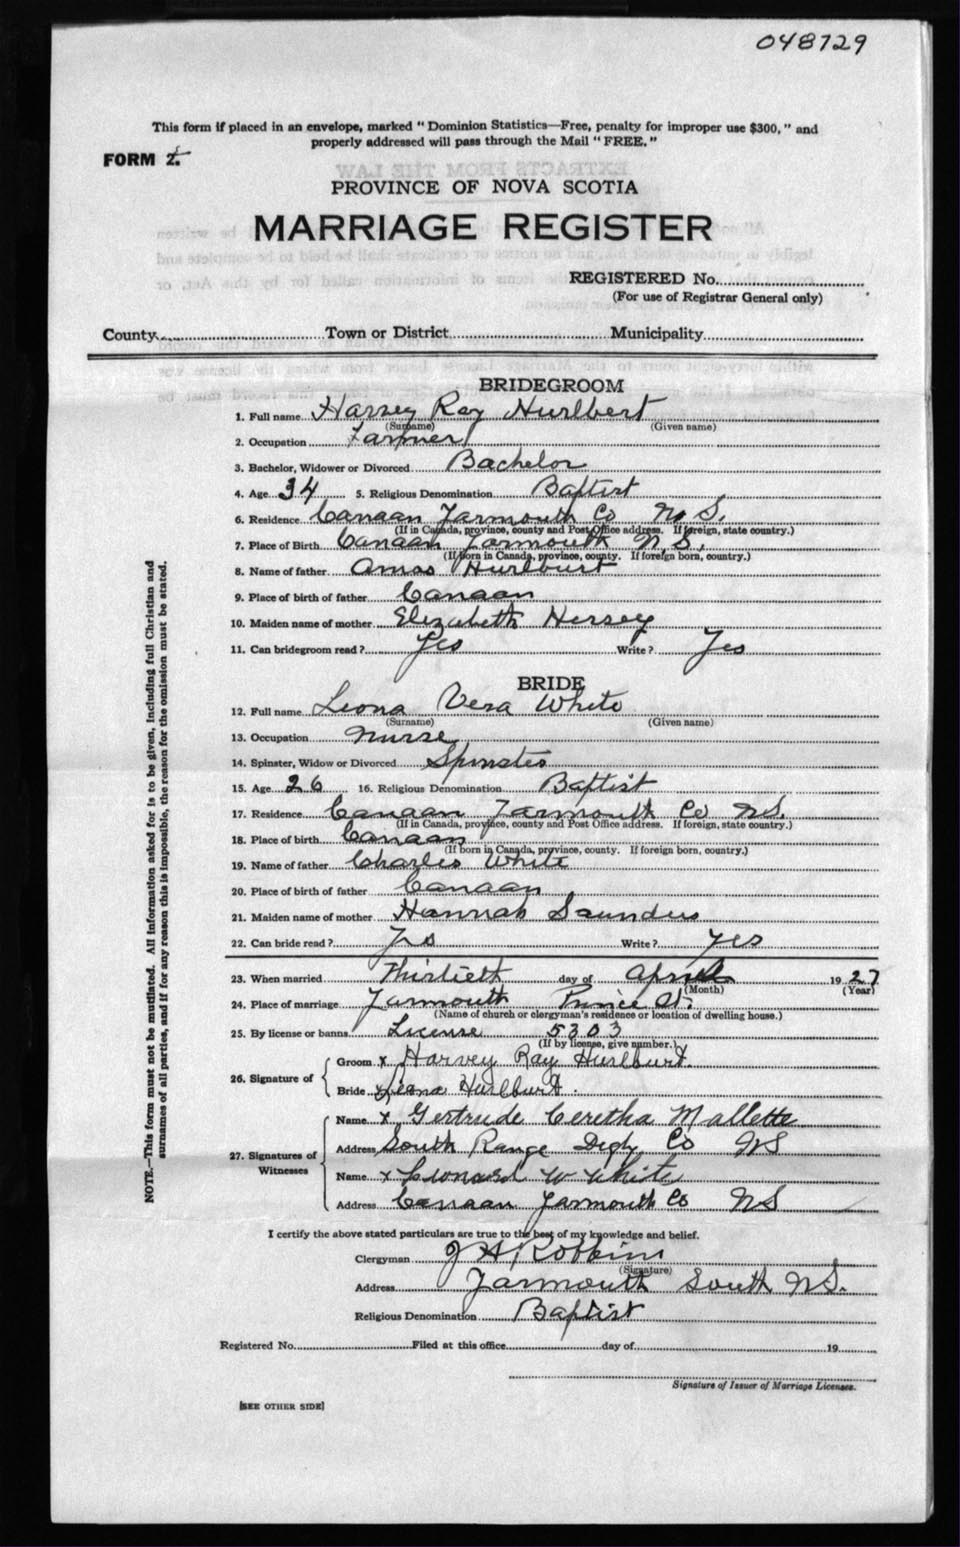 048729
This form if placed in an envelope, marked "Dominion Statistics—Free, penalty for improper use $300," and
properly addressed will pass through the Mail "FREE."
FORM
PROVINCE OF NOVA SCOTIA
MARRIAGE REGISTER
REGISTERED No.
(For use of Registrar General only)
County Town or District Municipality
BRIDEGROOM
1. Full name Harvey Ray Hurlbert
(Surname) (Given name)
2. Occupation Farmer
3. Bachelor, Widower or Divorced Bachelor
4. Age 34 5. Religious Denomination Baptist
6. Residence Canaan Yarmouth Co N. S.
(If in Canada, province, county and Post Office address. If foreign, state country.)
7. Place of Birth Canaan Yarmouth N. S.
(If born in Canada, province, county. If foreign born, country.)
8. Name of father Amos Hurlburt
9. Place of birth of father Canaan
10. Maiden name of mother Elizabeth Hersey
11. Can bridegroom read? Yes Write? Yes
BRIDE
12. Full name Leona Vera White
(Surname) (Given name)
13. Occupation Nurse
14. Spinster, Widow or Divorced Spinster
15. Age 26 16. Religious Denomination Baptist
17. Residence Canaan Yarmouth Co N.S.
(If in Canada, province, county and Post Office address. If foreign, state country.)
18. Place of birth Canaan
(If born in Canada, province, county. If foreign born, country.)
19. Name of father Charles White
20. Place of birth of father Canaan
21. Maiden name of mother Hannah Saunders
22. Can bride read? Yes Write? Yes
23. When married Thirtieth day of April 1927
(Month) (Year)
24. Place of marriage Yarmouth Prince St.
(Name of church or clergyman's residence or location of dwelling house.)
25. By license or banns License 5303
(If by license, give number.)
26. Signature of Groom x Harvey Ray Hurlburt
Bride x Leona Hurlburt.
27. Signatures of Witnesses Name x Gertrude Ceretha Mallette
Address South Range Digby Co NS
Name x Leonard W White
Address Canaan Yarmouth Co NS
I certify the above stated particulars are true to the best of my knowledge and belief.
Clergyman J H Robbins
(Signature)
Address Yarmouth South N.S.
Religious Denomination Baptist
Registered No. Filed at this office day of 19
Signature of Issuer of Marriage Licenses.
[SEE OTHER SIDE]
NOTE.—This form must not be mutilated. All information asked for is to be given, including full Christian and
surnames of all parties, and if for any reason this is impossible, the reason for the omission must be stated.